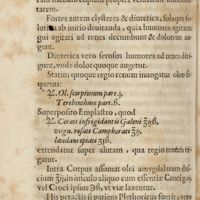 tatem.
Fortes autem clysteres & diuretica, solaque solutiua
ab initio deuitanda, quia humores agitant
qui agitati ad renes decumbunt & dolorem augent.
Diuretica vero serosos humores ad renes
vnde dolor quoque augetur.
Statim quoque regio renum inungatur oleo sequenti:
℞. Ol. scorpionum part. j.
Terebinthina part. ß.
Superposito Emplastro, quod
℞. Cerati infrigidantis Galeni
virg. rosati Camphorati
laudani opiati
extendatur super alutam, qua regio renum tegatur.
Intra Corpus assumat olei amygdalarum dulcium
in iusculo aliquo cum essentiæ Croci
vel Croci ipsius vt viæ laxentur.
His peractis si patiens Plethoricus fuerit,